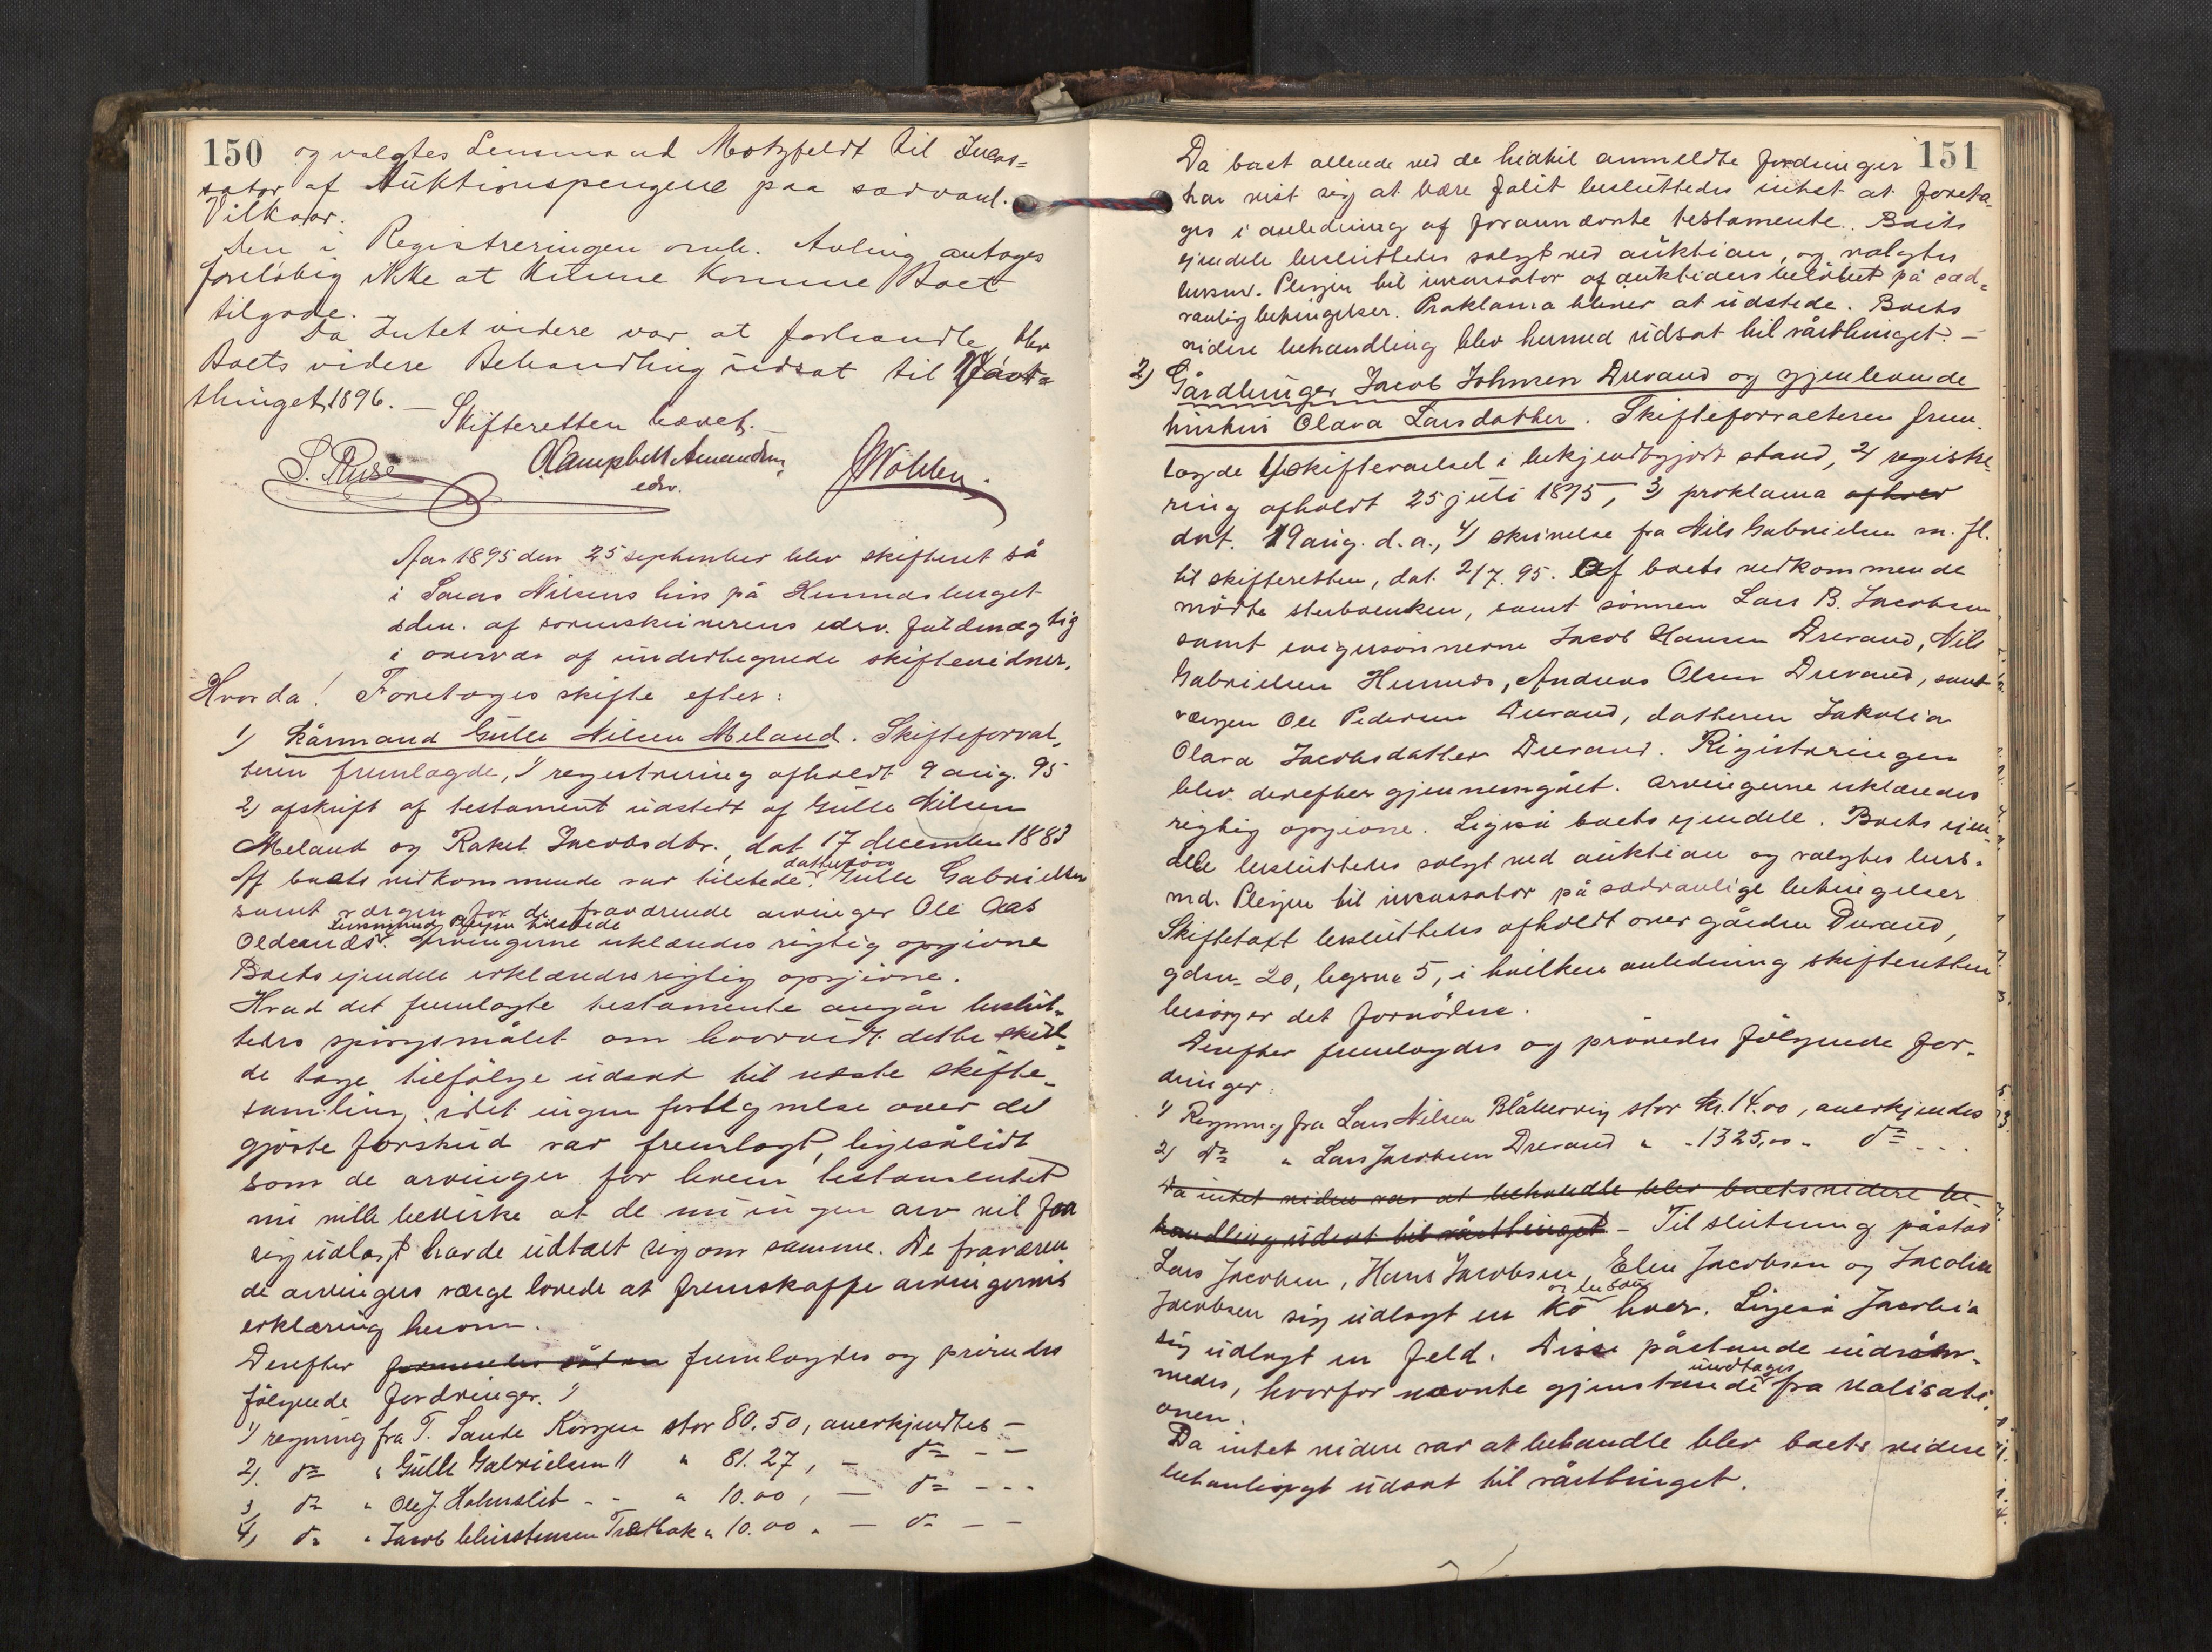 150 og valgtes Lensmand Motzfeldt til Incas=
sator af Auktionspengene paa sædvanl.
Vilkaar.
Den i Registreringen omh. Avling antages
foreløbig ikke at kunne komme Boet
tilgode.
Da Intet videre var at forhandle, blev
Boets videre Behandling udsat til Vaar=
thinget 1896. —
Skifteretten hævet. —
S. Ruse Campbell Amundsen JWøhlen.
edsv.
Aar 1895 den 25 september blev skifteret så
i Lucas Nilsens hus på Hemnesberget
adm. af sorenskriverens edsv. fuldmægtig
i overvær af undertegnede skiftevidner.
Hvorda! Foretoges skifte efter:
1) Kårmand Gulle Nilsen Meland. Skifteforval,
teren fremlagde, 1) registrering afholdt 9 aug. 95
2) afskrift af testament udstedt af Gulle Nilsen
Meland og Rakel Jacobsdtr., dat 17 december 1883
dattersøn
Af boets vedkommende var tilstede: Gulle Gabrielsen
samt værgen for de fraværende arvinger Ole Aas
Lensmand Plesjen tilstede
Oldernæs. Arvingerne erklæredes rigtig opgivne
Boets ejendele erklæredes rigtig opgivne.
Hvad det fremlagte testamente angår beslut-
tedes spørgsmålet om hvorvidt dette skul-
de tage tilfølge udsat til næste skifte-
samling, idet ingen fortegnelse over de
gjorte forskud var fremlagt, ligesålidt
som de arvinger for hvem testamentet
nu ville bevirke at de nu ingen arv vil faa
sig udlagt havde udtalt sig om samme. De fraværen
de arvingers værge lovede at fremskaffe arvingernes
erklæring herom.
Derefter fremlagdes og prøvedes
følgende fordringer. 1)
1) regning fra T. Sande Korgen stor 80.50, anerkjendtes —
2) do " Gulle Gabrielsen " " 81.27, — do — —
3) do " Ole J. Holmslet - - " 10.00, — do - - -
4) do " Jacob Christensen Trætbak " 10.00 " — do — —
151
Da boet allerede ved de hidtil anmeldte fordringer
har vist sig at være falit besluttedes intet at foreta-
ges i anledning af forannævnte testamente. Boets
ejendele besluttedes solgt ved auktion, og valgtes
lensmd. Plesjen til incassator af auktionsbeløbet på sæd-
vanlig betingelser. Proklama bliver at udstede. Boets
videre behandling blev hermed udsat til vårthinget. —
2) Gårdbruger Jacob Johnsen Drevand og gjenlevende
hustru Olava Larsdatter. Skifteforvalteren frem-
lagde 1) skiftevarsel i bekjendtgjort stand, 2) registre-
ring afholdt 25 juli 1895, 3) proklama
dat. 19 aug. d.a., 4) skrivelse fra Nils Gabrielsen m. fl.
til skifteretten, dat. 2/7. 95. Af boets vedkommende
mødte sterboenken, samt sønnen Lars B. Jacobsen
samt svigersønnerne Jacob Hansen Drevand, Nils
Gabrielsen Hemnes, Andreas Olsen Drevand, samt
værgen Ole Pedersen Drevand, datteren Jakolia
Olava Jacobsdatter Drevand. Registreringen
blev derefter gjennemgået. Arvingerne erklæredes
rigtig opgivne. Ligeså boets ejendele. Boets ejen
dele besluttedes solgt ved auktion og valgtes lens-
md. Plesjen til incassator på sædvanlige betingelser
Skiftetaxt besluttedes afholdt over gården Drevand,
gdsn. 20, bgsn. 5, i hvilken anledning skifteretten
besørger det fornødne.
Derefter fremlagdes og prøvedes følgende for-
dringer:
1) Regning fra Lars Nilsen Blåkerving stor Kr. 14.00, anerkjendes
2) do " Lars Jacobsen Drevand " - 1325,00 - do - - -
Da intet videre var at behandle blev boets videre be
handling udsat til vårthinget - Til slutning påstod
Lars Jacobsen, Hans Jacobsen, Elen Jacobsen og Jacolia
og en sau
Jacobsen sig udlagt en kø hver. Ligeså Jacolia
sig udlagt en feld. Disse påstande indrøm-
undtages
medes, hvorfor nævnte gjenstande fra realisati-
onen.
Da intet videre var at behandle blev boets videre
behandling udsat til vårthinget.